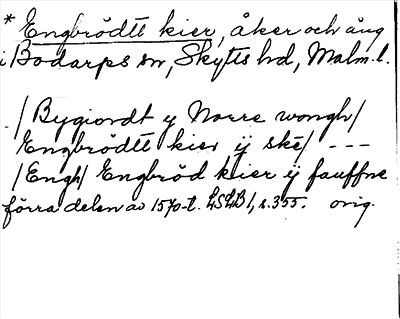 * Engbrödtt kier, åker och äng
i Bodarps sn, Skytts hd, Malm. l.
/Bygiordt y Norre wongh/
Engbrödtt kier ÿ ske/ ---
/Engh/ Engbröd kier ÿ fauffne
förra delen av 1570-t. LSLB 1, s. 355. orig.